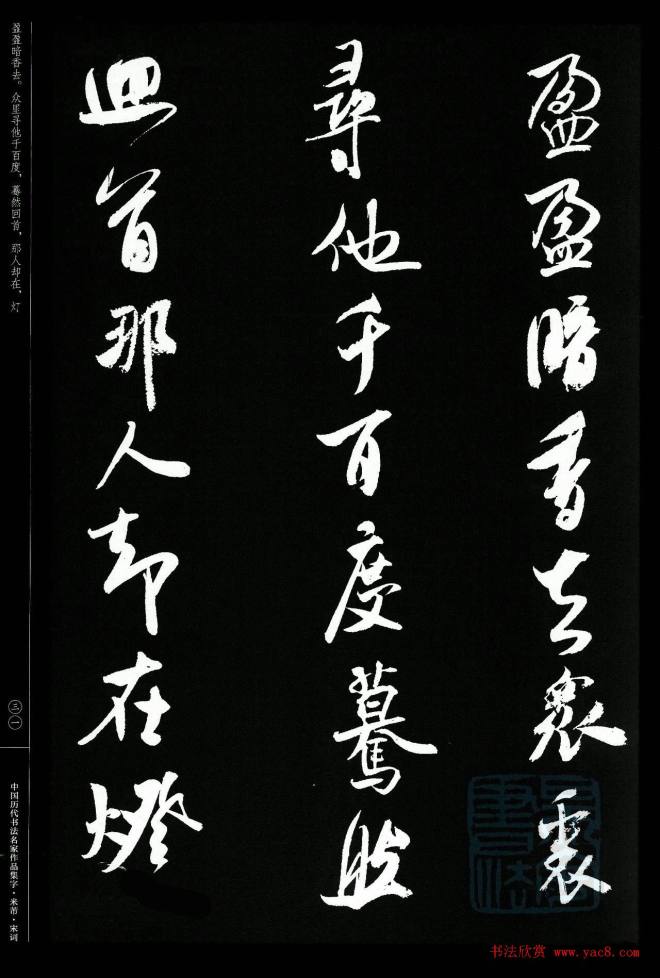 盈盈暗香去衆裏
尋他千百度驀然
迴首那人却在燈
盈盈暗香去。众里寻他千百度，蓦然回首，那人却在，灯
三一
中国历代书法名家作品集字·米芾·宋词
书法欣赏 www.yac8.com